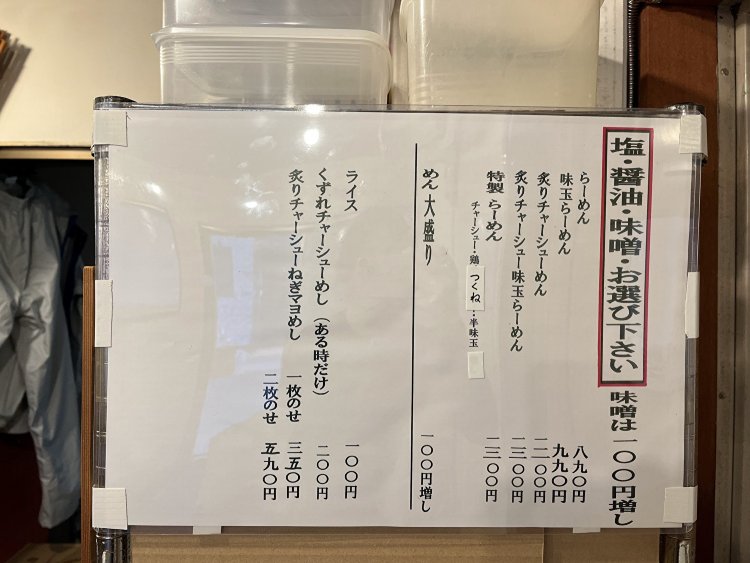 塩・醤油・味噌・お選び下さい 味噌は一〇〇円増し
らーめん 八九〇円
味玉らーめん 九九〇円
炙りチャーシューめん 一二〇〇円
炙りチャーシュー味玉らーめん 一三〇〇円
特製 らーめん 一三〇〇円
チャーシュー・鶏つくね・半味玉
めん 大盛り 一〇〇円増し
ライス 一〇〇円
くずれチャーシューめし(ある時だけ) 二〇〇円
炙りチャーシューねぎマヨめし 一枚のせ 三五〇円
二枚のせ 五九〇円